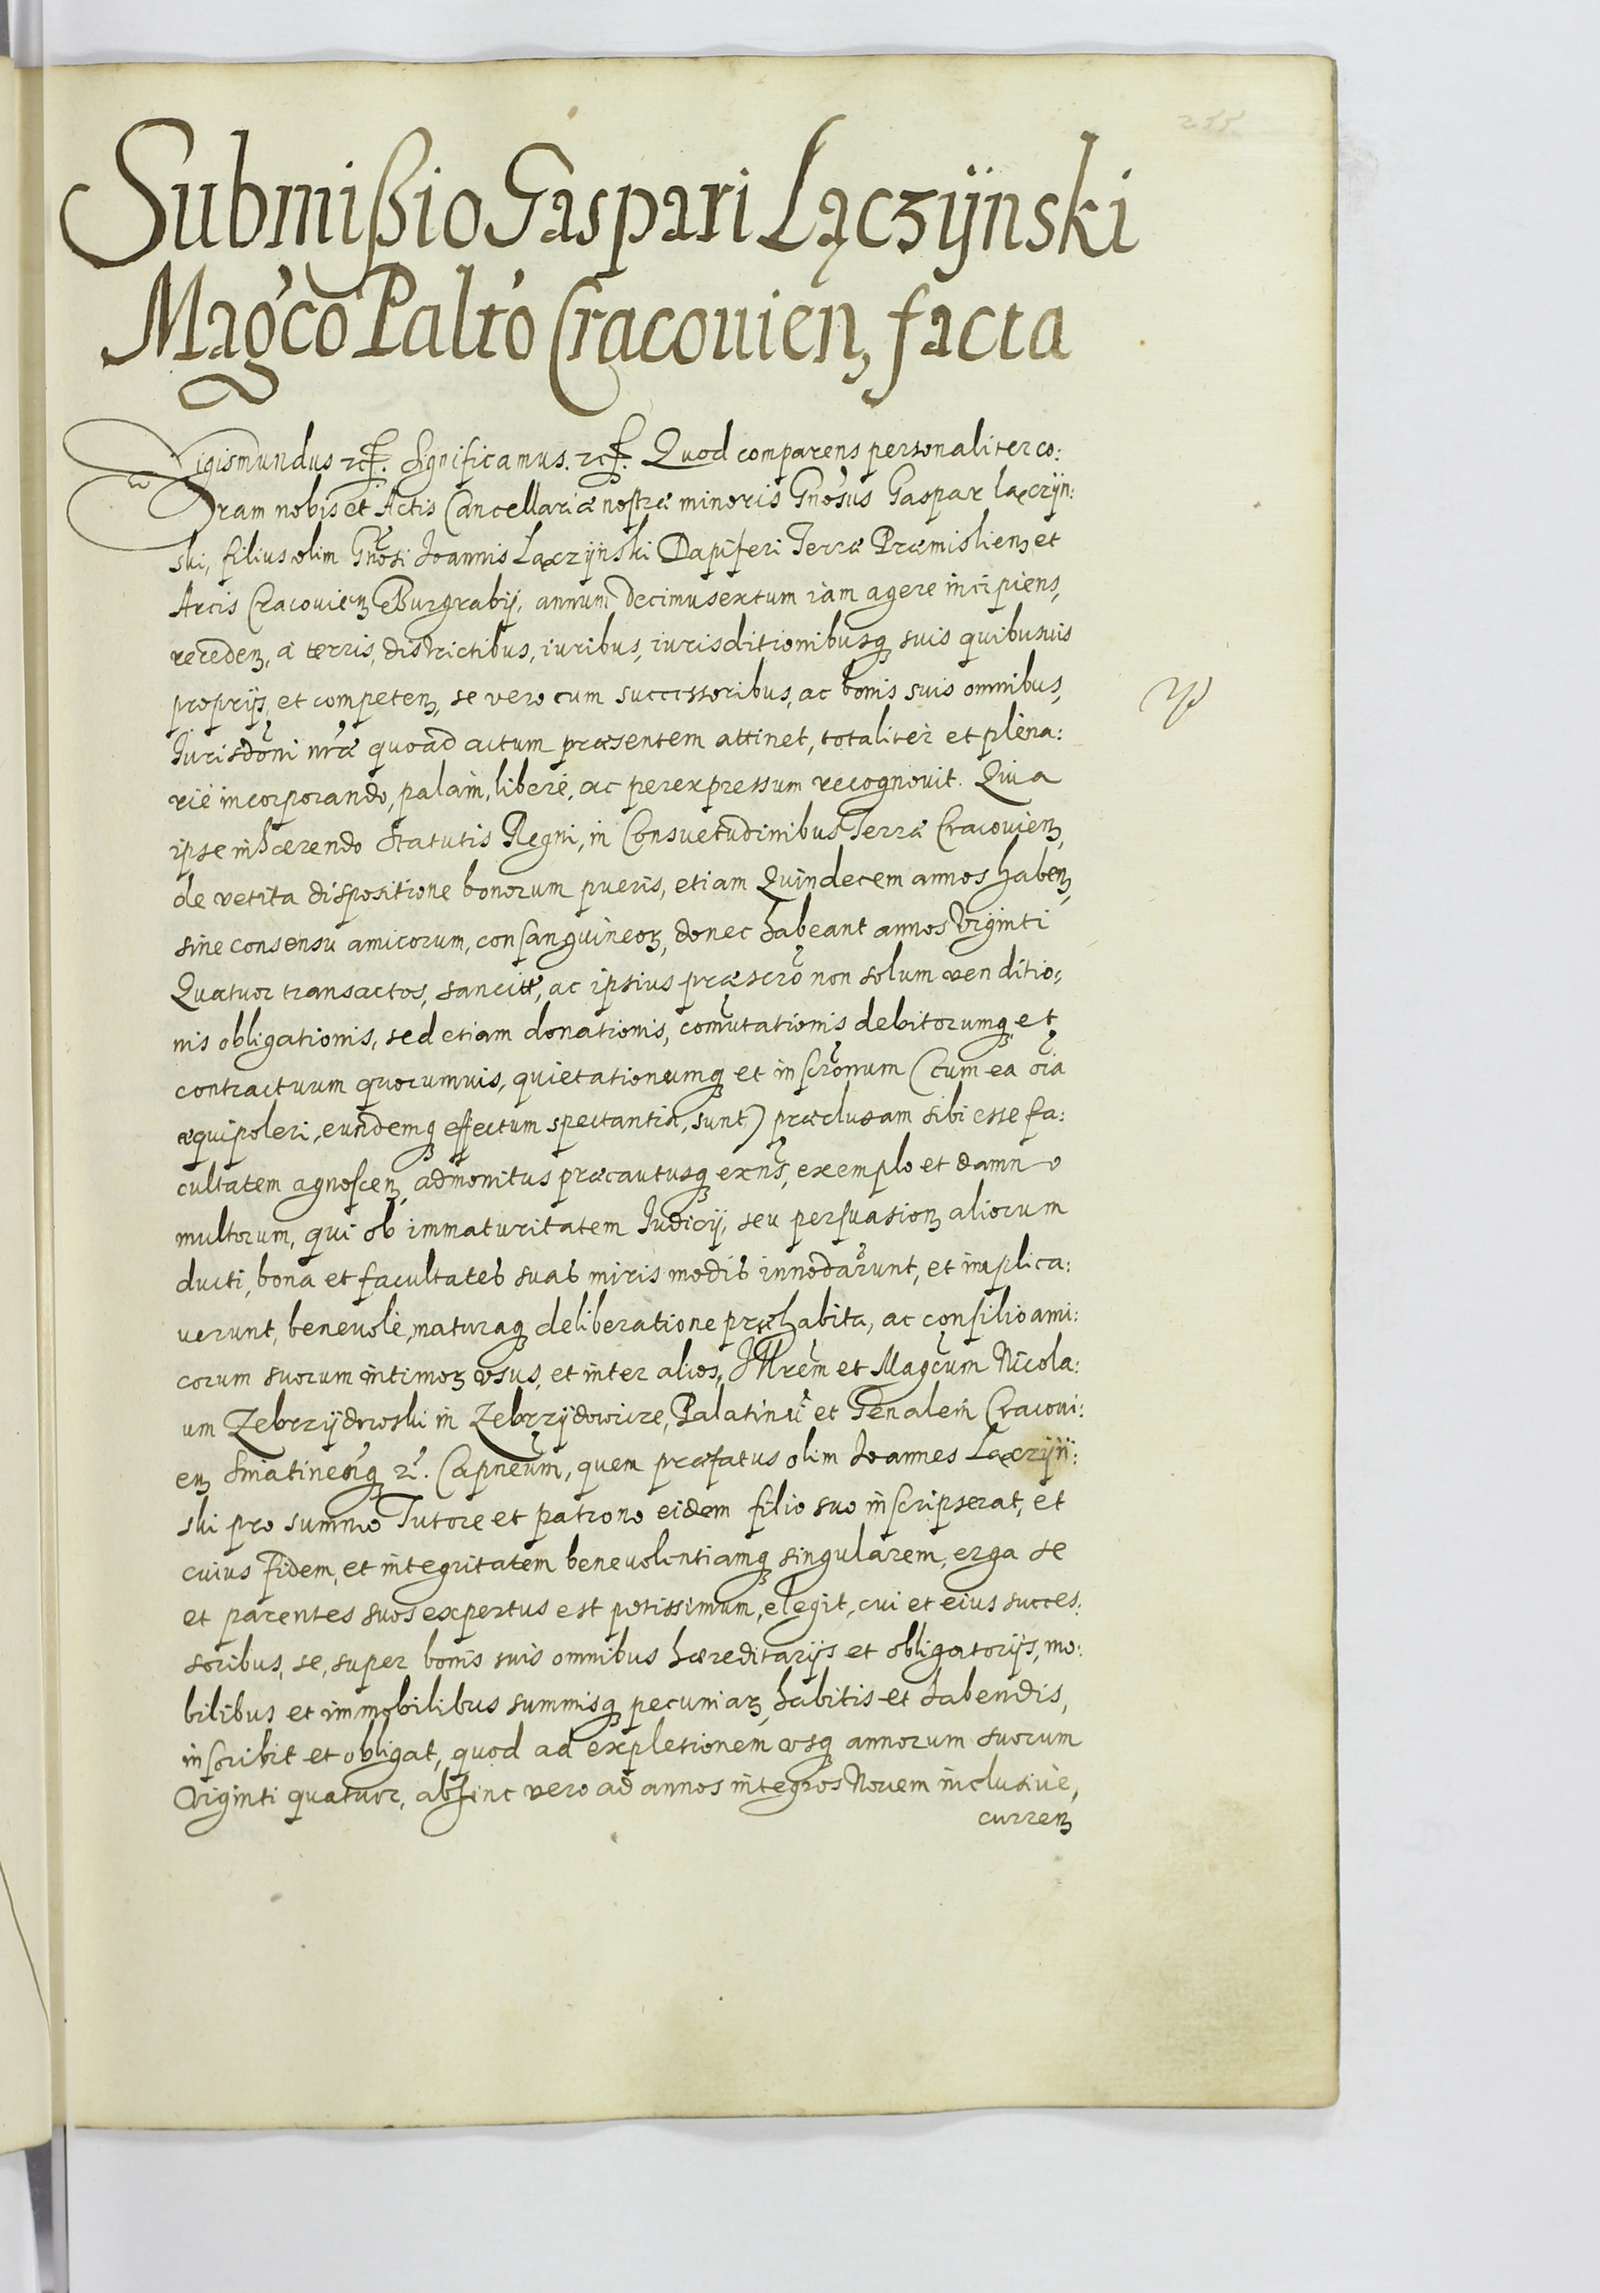 255
Submißio Gaspari Lączÿnski
Mag'co Palt'o Cracouien, facta
Sigismundus etc. Significamus. etc. Quod comparens personaliter co:
ram nobis et Actis Cancellariæ nostræ minoris Gnosus Gaspar Lączÿn:
ski, filius olim Gnosi Joannis Lączÿnski Dapiferi Terræ Præmislien, et
Arcis Cracovien Burgrabij, annum decimusextum iam agere incipiens,
receden, a terris, districtibus, iuribus, iurisditionibusq suis quibusuis
proprijs, et competen, se vero cum successoribus, ac bonis suis omnibus,
Jurisdoni nræ quoad actum præsentem attinet, totaliter et plena:
rie incorporando, palam, libere, ac perexpressum recognouit. Quia
ipse inhærendo Statutis Regni, in Consuetudinibus Terræ Cracouien,
de vetita dispositione bonorum pueris, etiam Quindecem annos haben,
sine consensu amicorum, consanguineor, donec habeant annos Viginti
Quatuor transactos, sancite, ac ipsius præscro non solum venditio:
nis obligationis, sed etiam donationis, comutationis debitorumq et
contractuum quorumuis, quietationumq et inscronum (cum ea oia
æquipoleri, eundemq effectum spectantia, sunt) præclusam sibi esse fa:
cultatem agnoscen, admonitus præcautusq exns, exemplo et damno
multorum, qui ob immaturitatem Judicij, seu persuasion aliorum
ducti, bona et facultates suas miris modis innodarunt, et implica:
uerunt, beneuole, maturaq deliberatione præhabita, ac consilio ami:
corum suorum intimor usus, et inter alios, Jllrem et Magcum Nicola:
um Zebrzÿdowski in Zebrzÿdowice, Palatinu et Genalem Cracoui:
en Sniatinenq etc. Capneum, quem præfatus olim Joannes Lączÿn:
ski pro summo Tutore et patrono eidem filio suo inscripserat, et
cuius fidem, et integritatem beneuolentiamq singularem, erga se
et parentes suos expertus est potissimum, elegit, cui et eius succes:
soribus, se, super bonis suis omnibus hæreditarijs et obligatorijs, mo:
bilibus et immobilibus summisq pecuniar, habitis et habendis,
inscribit et obligat, quod ad expletionem usq annorum suorum
Viginti quatuor, abhinc vero ad annos integros Nouem inclusiue,
curren